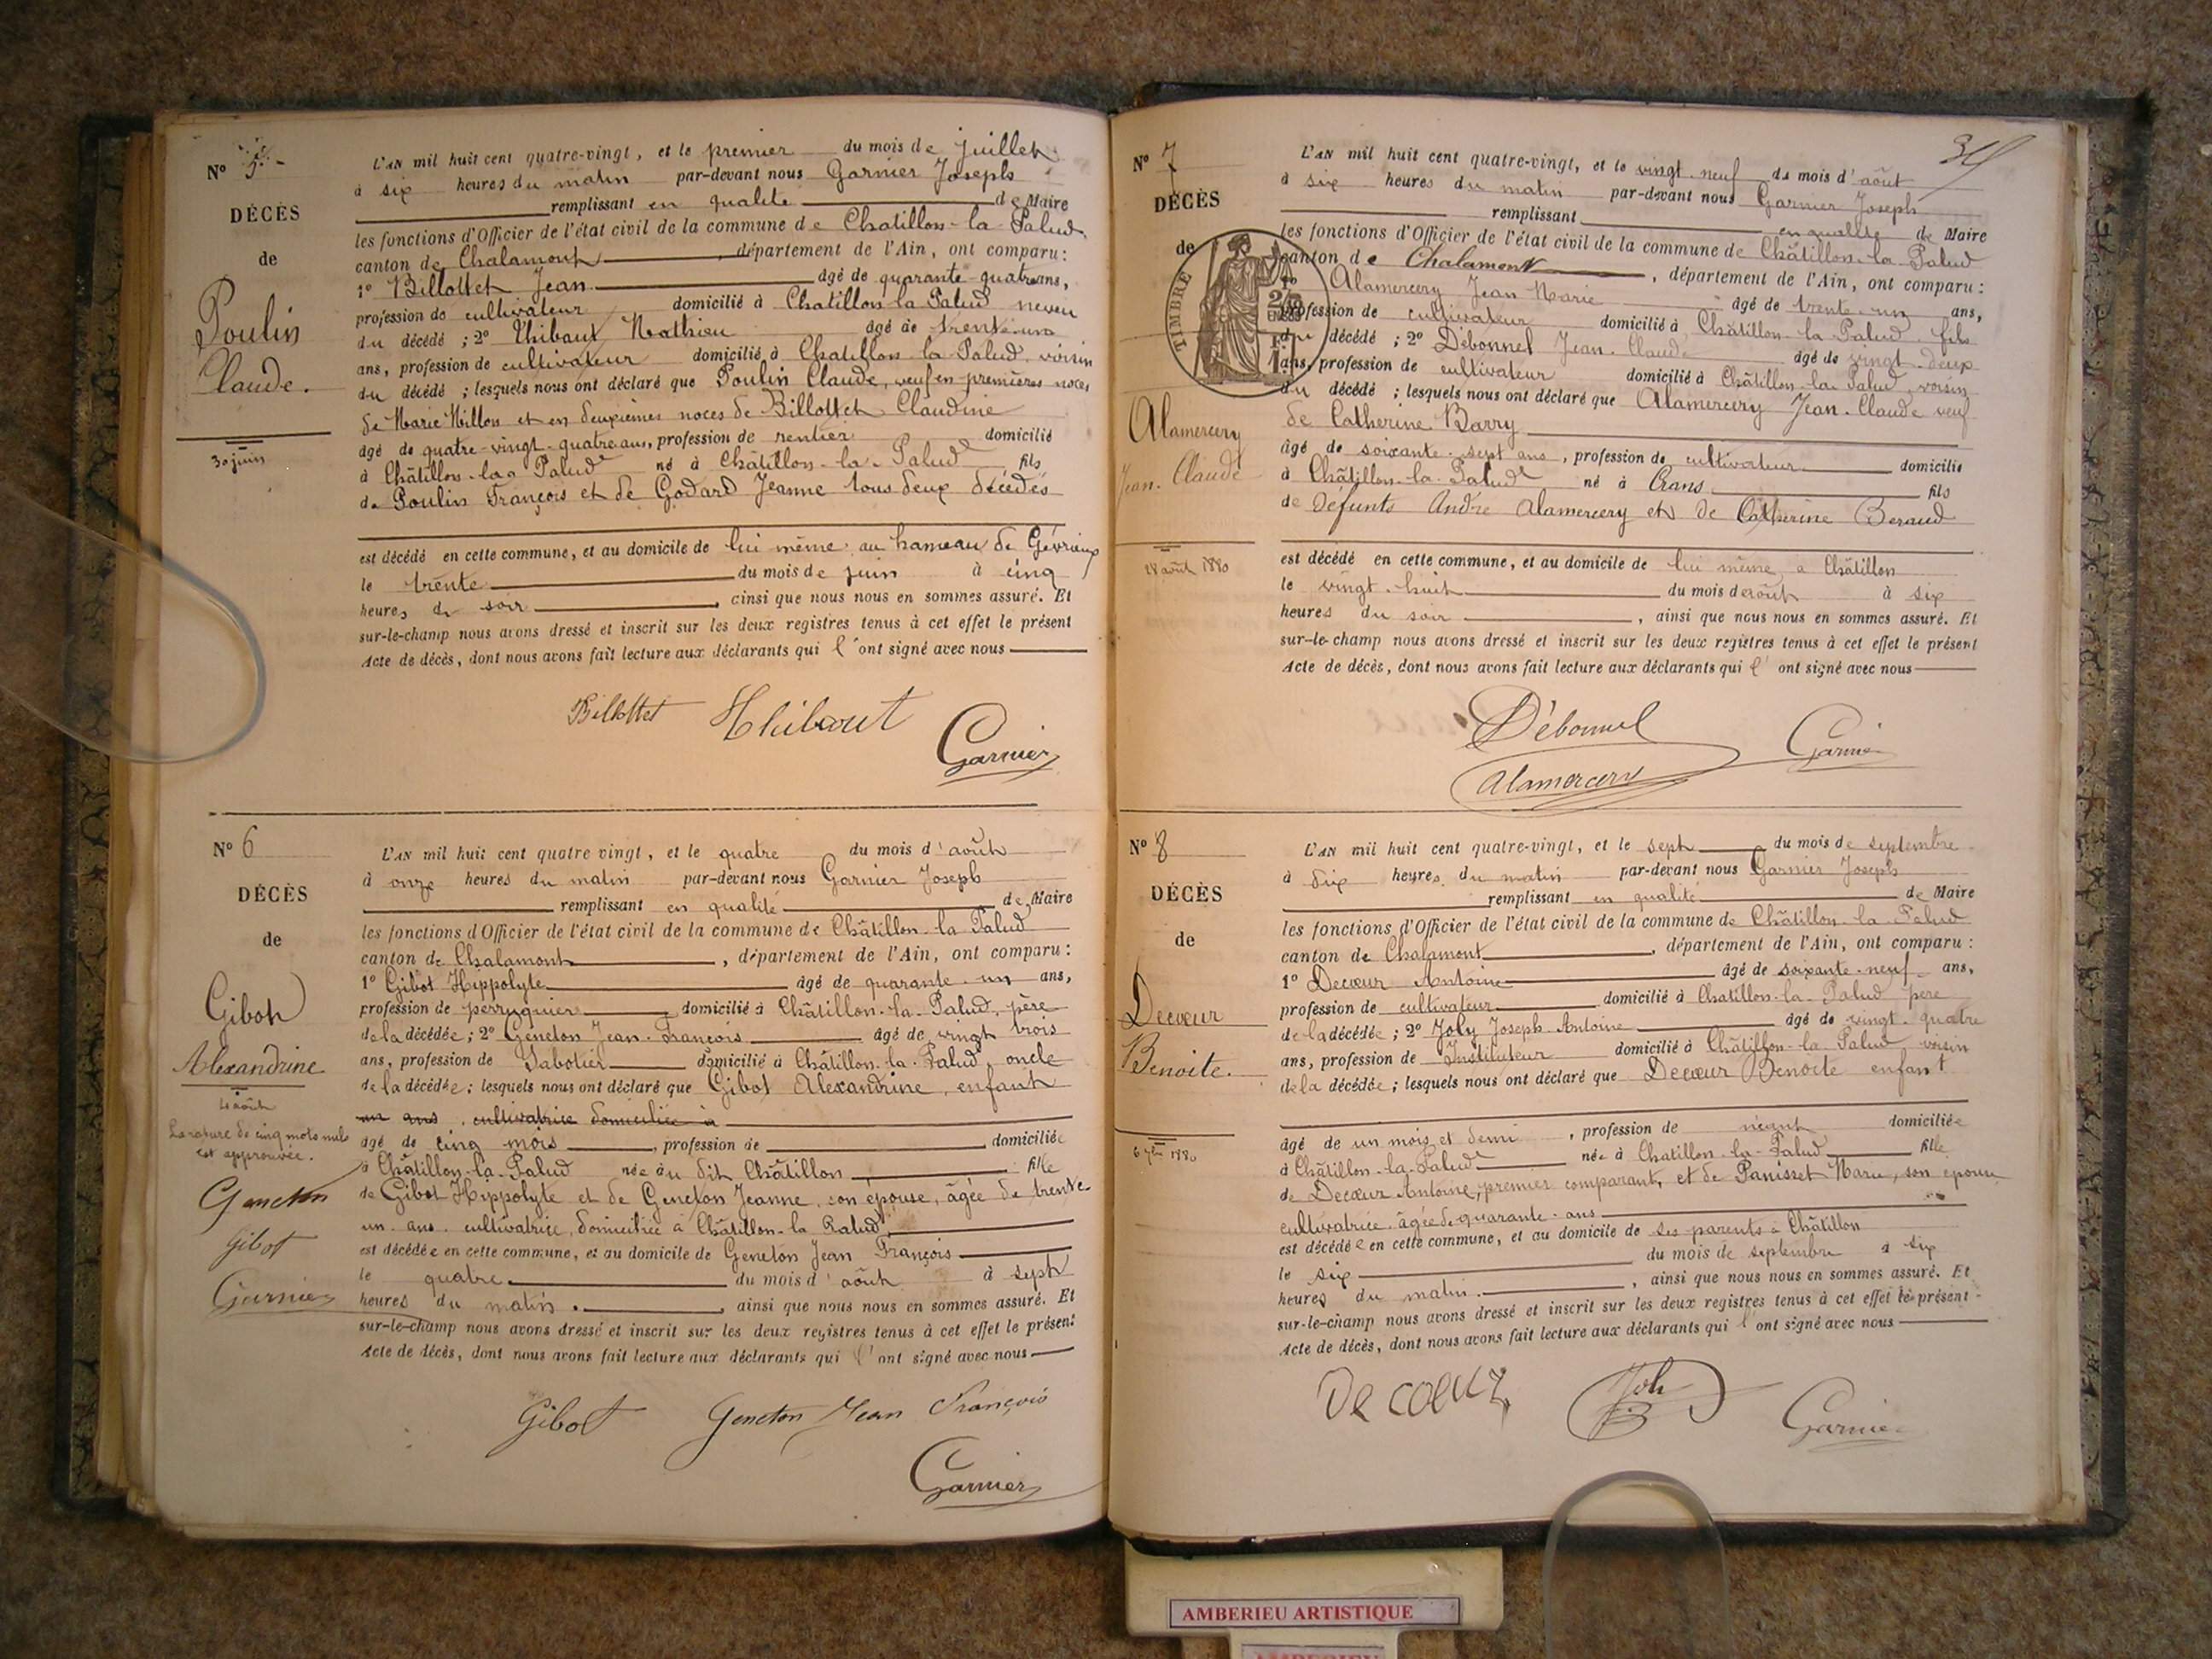 N° 5
DÉCÈS
de
Poulin
Claude.
30 juin
L'AN mil huit cent quatre-vingt, et le premier du mois de juillet
à six heures du matin par-devant nous Garnier Joseph
remplissant en qualité de Maire
les fonctions d'Officier de l'état civil de la commune de Chatillon-la-Palud
canton de Chalamont, département de l'Ain, ont comparu :
1° Billottet Jean âgé de quarante-quatre ans,
profession de cultivateur domicilié à Chatillon la Palud neveu
du décédé ; 2° Thibaut Mathieu âgé de trente-un
ans, profession de cultivateur domicilié à Chatillon la Palud voisin
du décédé ; lesquels nous ont déclaré que Poulin Claude, veuf en premières noces
de Marie Millon et en deuxièmes noces de Billottet Claudine
âgé de quatre-vingt-quatre ans, profession de rentier domicilié
à Châtillon-la-Palud né à Châtillon-la-Palud fils
de Poulin François et de Godard Jeanne tous deux décédés
est décédé en cette commune, et au domicile de lui même au hameau de Gévrieux
le trente du mois de juin à cinq
heures du soir, ainsi que nous nous en sommes assuré. Et
sur-le-champ nous avons dressé et inscrit sur les deux registres tenus à cet effet le présent
Acte de décès, dont nous avons fait lecture aux déclarants qui l'ont signé avec nous
Billottet Thibaut
Garnier
N° 6
DÉCÈS
de
Gibot
Alexandrine
4 août
La rature de cinq mots nuls
est approuvée.
Geneton
Gibot
Garnier
L'AN mil huit cent quatre vingt, et le quatre du mois d'août
à onze heures du matin par-devant nous Garnier Joseph
remplissant en qualité de Maire
les fonctions d'Officier de l'état civil de la commune de Châtillon-la Palud
canton de Chalamont, département de l'Ain, ont comparu :
1° Gibot Hippolyte âgé de quarante-un ans,
profession de perruquier domicilié à Châtillon-la-Palud, père
de la décédée ; 2° Geneton Jean-François âgé de vingt trois
ans, profession de Sabotier domicilié à Châtillon-la-Palud, oncle
de la décédée ; lesquels nous ont déclaré que Gibot Alexandrine, enfant
un ans, cultivatrice domiciliée à
âgé de cinq mois, profession de domiciliée
à Châtillon-la-Palud née au dit Châtillon fille
de Gibot Hippolyte et de Geneton Jeanne, son épouse, âgée de trente-
un ans cultivatrice, domiciliée à Châtillon-la Palud
est décédée en cette commune, et au domicile de Geneton Jean François
le quatre du mois d'août à sept
heures du matin, ainsi que nous nous en sommes assuré. Et
sur-le-champ nous avons dressé et inscrit sur les deux registres tenus à cet effet le présent
Acte de décès, dont nous avons fait lecture aux déclarants qui l'ont signé avec nous
Gibot Geneton Jean François
Garnier
N° 7
DÉCÈS
de
TIMBRE
Alamercery
Jean-Claude
28 août 1880
L'AN mil huit cent quatre-vingt, et le vingt-neuf du mois d'août
à six heures du matin par-devant nous Garnier Joseph
remplissant en qualité de Maire
les fonctions d'Officier de l'état civil de la commune de Châtillon-la-Palud
canton de Chalamont, département de l'Ain, ont comparu :
1° Alamercery Jean Marie âgé de trente-un ans,
profession de cultivateur domicilié à Châtillon-la Palud fils
du décédé ; 2° Débonnel Jean-Claude âgé de vingt-deux
ans, profession de cultivateur domicilié à Châtillon-la-Palud, voisin
du décédé ; lesquels nous ont déclaré que Alamercery Jean-Claude veuf
de Catherine Barry
âgé de soixante-sept ans, profession de cultivateur domicilié
à Châtillon-la-Palud né à Crans fils
de Défunts André Alamercery et de Catherine Beraud
est décédé en cette commune, et au domicile de lui même à Châtillon
le vingt-huit du mois d'août à six
heures du soir, ainsi que nous nous en sommes assuré. Et
sur-le-champ nous avons dressé et inscrit sur les deux registres tenus à cet effet le présent
Acte de décès, dont nous avons fait lecture aux déclarants qui l'ont signé avec nous
Débonnel Garnier
Alamercery
N° 8
DÉCÈS
de
Decœur
Benoite.
6 7bre 1880
L'AN mil huit cent quatre-vingt, et le sept du mois de septembre
à dix heures du matin par-devant nous Garnier Joseph
remplissant en qualité de Maire
les fonctions d'Officier de l'état civil de la commune de Châtillon-la-Palud
canton de Chalamont, département de l'Ain, ont comparu :
1° Decœur Antoine âgé de soixante-neuf ans,
profession de cultivateur domicilié à Chatillon-la-Palud père
de la décédée ; 2° Joly Joseph Antoine âgé de vingt-quatre
ans, profession de Instituteur domicilié à Châtillon-la Palud, voisin
de la décédée ; lesquels nous ont déclaré que Decœur Benoite enfant
âgé de un mois et demi, profession de néant domiciliée
à Châtillon-la-Palud née à Chatillon-la-Palud fille
de Decœur Antoine, premier comparant, et de Panisset Marie, son épouse,
cultivatrice âgée de quarante-ans
est décédée en cette commune, et au domicile de ses parents à Châtillon
le six du mois de septembre à six
heures du matin, ainsi que nous nous en sommes assuré. Et
sur-le-champ nous avons dressé et inscrit sur les deux registres tenus à cet effet le présent
Acte de décès, dont nous avons fait lecture aux déclarants qui l'ont signé avec nous
Decoeur Joly Garnier
AMBERIEU ARTISTIQUE
AMBERIEU